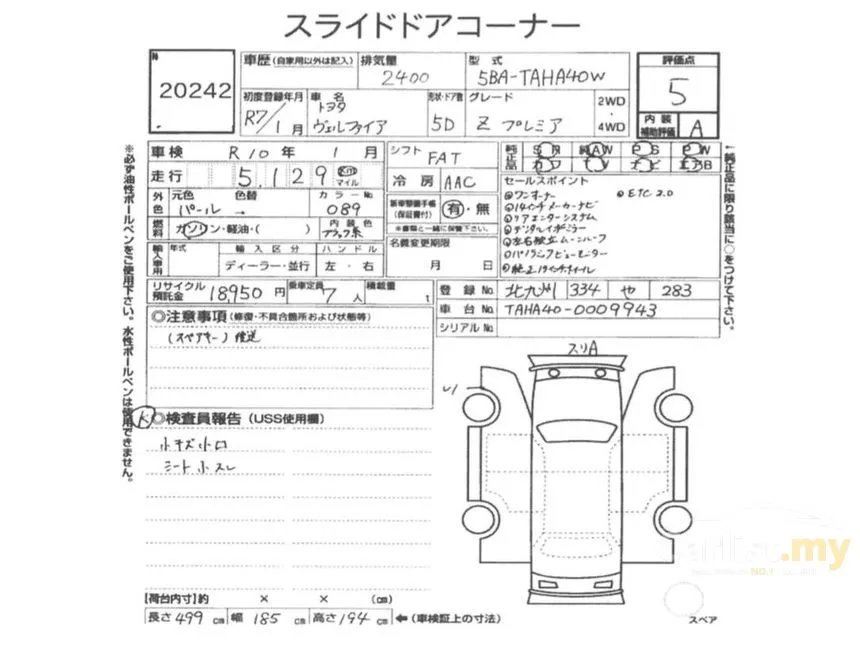 スライドドアコーナー
No 20242
車歴 (自家用以外は記入) 排気量 2400 型式 5BA-TAHA40W 評価点 5
初度登録年月 R7/1月 車名 トヨタ ヴェルファイア 形状・ドア数 5D グレード Z プレミア 2WD 4WD
内装補助評価 A
車検 R10年 1月 シフト FAT 純正品 SR 純AW PS PW
走行 5,129 km マイル 冷房 AAC カワ TV ナビ エアB
外色 元色 パール 色替 → カラーNo 089 内装色 ブラック系
燃料 ガソリン・軽油・( )
新車整備手帳(保証書付) 有・無
※書類と一緒に保管下さい。
名義変更期限 月 日
セールスポイント
①ワンオーナー ⑧ETC2.0
②14インチメーカーナビ
③リアエンターシステム
④デジタルインナーミラー
⑤左右独立ムーンルーフ
⑥パノラミックビューモニター
⑦純正19インチホイール
輸入車用 年式 輸入区分 ディーラー・並行 ハンドル 左・右
リサイクル預託金 18,950円 乗車定員 7人 積載量 t
登録No. 北九州 334 や 283
車台No. TAHA40-0009943
シリアルNo.
◎注意事項 (修復・不具合箇所および状態等)
(スペアキー) 後送
スリA
U1
◎検査員報告 (USS使用欄)
小キズ小凹
シート小スレ
【荷台内寸】約 × × (cm)
長さ 499 cm 幅 185 cm 高さ 194 cm ←(車検証上の寸法)
スペア
※必ず油性ボールペンをご使用下さい。水性ボールペンは使用できません。
↑純正品に限り該当に○をつけて下さい。
carlist.my
NO.1